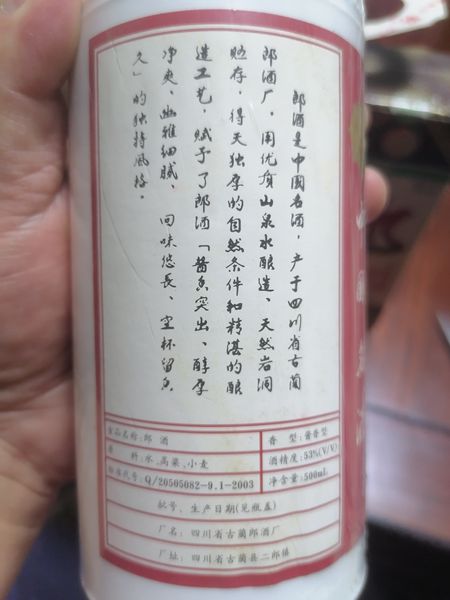 郎酒是中國名酒，产于四川省古蔺
郎酒厂，用优质山泉水酿造、天然岩洞
贮存，得天独厚的自然条件和精湛的酿
造工艺，赋予了郎酒「酱香突出、醇厚
净爽、幽雅细腻、回味悠長、空杯留香
久」的独特風格。
食品名称:郎 酒
香 型:酱香型
原 料:水、高粱、小麦
酒精度:53%(V/V)
标准代号:Q/20505082-9.1-2003
净含量:500mL
批号、生产日期(见瓶盖)
厂名:四川省古蔺郎酒厂
厂址:四川省古蔺县二郎镇